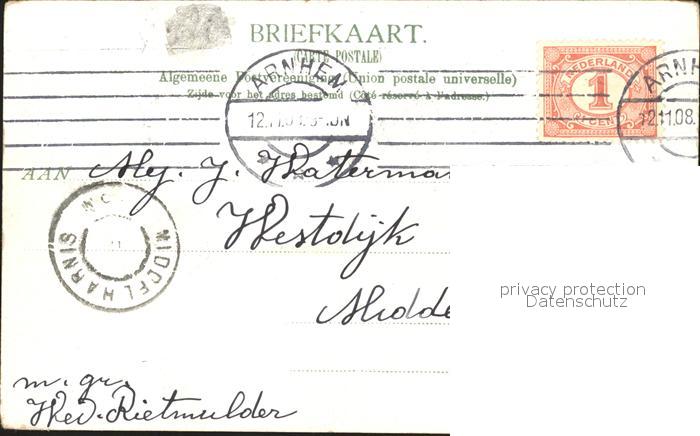 BRIEFKAART.
(CARTE POSTALE)
Algemeene Postvereeniging (Union postale universelle)
Zijde voor het adres bestemd (Côté réservé à l'adresse.)
ARNHEM
12.11.08.
NEDERLAND
1
CENT
ARNH
12.11.08.
AAN Mej. J. Waterma
Westdijk
Midde
MIDDELHARNIS
m. gr.
Wed. Rietmulder
privacy protection
Datenschutz